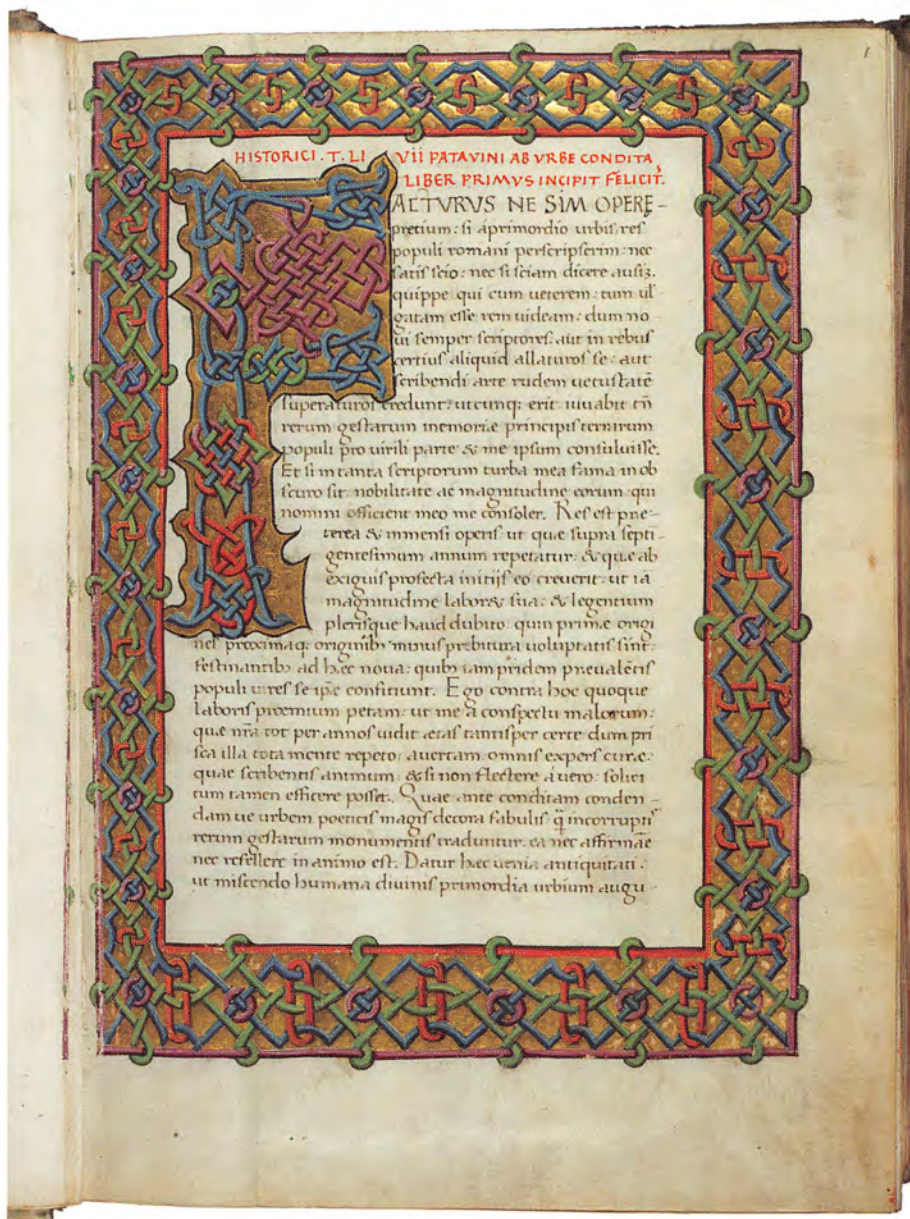 1
HISTORICI · T · LI VII PATAVINI AB VRBE CONDITA
LIBER PRIMVS INCIPIT FELICIT.
FACTVRVS NE SIM OPERĘ-
pretium: si aprimordio urbis res
populi romani perscripserim: nec
satis scio: nec si sciam dicere ausiʒ.
quippe qui cum ueterem: tum ul
gatam esse rem uideam: dum no
ui semper scriptores: aut in rebus
certius aliquid allaturos se: aut
scribendi arte rudem uetustatē
superaturos credunt: utcunq; erit iuuabit tn̄
rerum gestarum memoriæ principis terrarum
populi pro uirili parte & me ipsum consuluisse.
Et si in tanta scriptorum turba mea fama in ob
scuro sit: nobilitate ac magnitudine eorum qui
nomini officient meo me consoler. Res est præ
terea & immensi operis ut quæ supra septi-
gentesimum annum repetatur: & quæ ab
exiguis profecta initijs eo creuerit: ut iā
magnitudine laboræ sua: & legentium
plerisque haud dubito: quin primæ origi
nes proximaq; originibꝫ minus prebitura uoluptatis sint:
festinantibꝫ ad hæc noua: quibꝫ iam pridem præualētis
populi uires se ip̄e conficiunt. Ego contra hoc quoque
laboris præmium petam: ut me a conspectu malorum:
quæ nr̄a tot per annos uidit ætas tantisper certe dum pri
sca illa tota mente repeto: auertam: omnis expers curæ
quae scribentis animum: & si non flectere a uero: solici
tum tamen efficere posset. Quae ante conditam conden-
dam ue urbem poeticis magis decora fabulis q̄ incorruptis
rerum gestarum monumentis traduntur: ea nec affirmāe
nec refellere in animo est. Datur hæc uenia antiquitati:
ut miscendo humana diuinis primordia urbium augu-